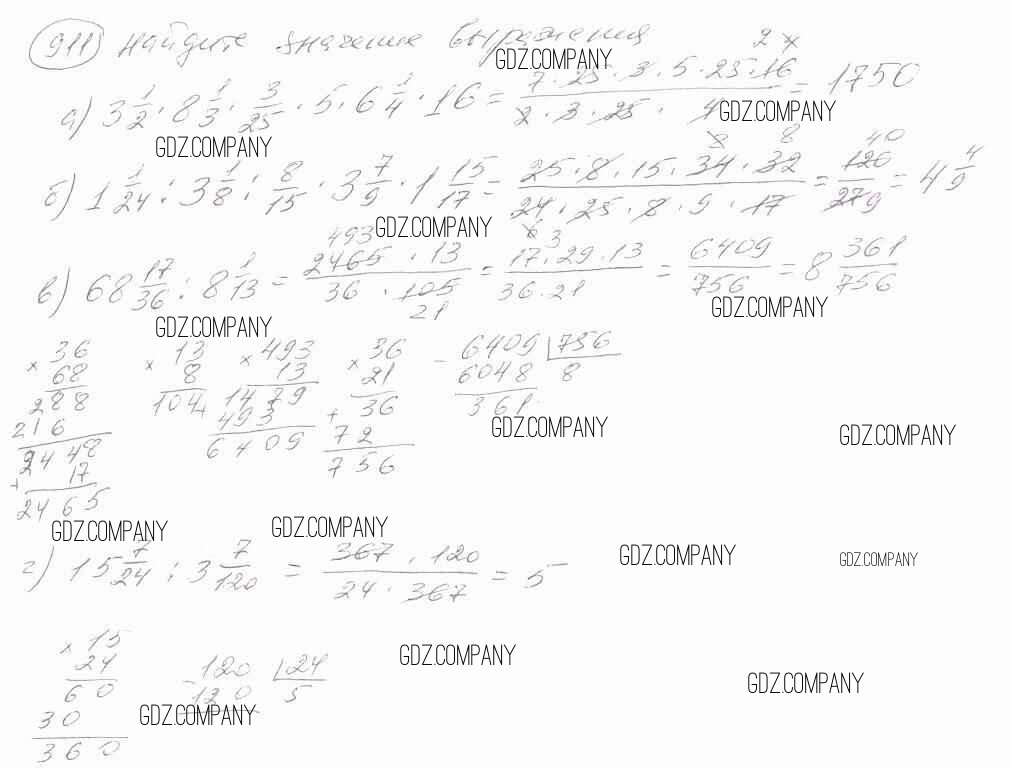 911 найдите значение выражения
GDZ.COMPANY
а) 3 1/2 · 8 1/3 · 3/25 · 5 · 6 1/4 · 16 = 7 · 25 · 3 · 5 · 25 · 16 / 2 · 3 · 25 · 4 = 1750
GDZ.COMPANY
GDZ.COMPANY
б) 1 1/24 : 3 1/8 : 8/15 · 3 7/9 · 1 15/17 = 25 · 8 · 15 · 34 · 32 / 24 · 25 · 8 · 9 · 17 = 120/27 = 4 4/9
GDZ.COMPANY
в) 68 17/36 : 8 1/13 = 2465 · 13 / 36 · 105 = 17 · 29 · 13 / 36 · 21 = 6409/756 = 8 361/756
GDZ.COMPANY
GDZ.COMPANY
× 36 × 13 × 493 × 36 - 6409 | 756
68 8 13 21 6048 8
288 104 1479 36 361
216 493 + 72
2448 6409 756
+ 17
2465
GDZ.COMPANY
GDZ.COMPANY
GDZ.COMPANY
GDZ.COMPANY
г) 15 7/24 : 3 7/120 = 367 · 120 / 24 · 367 = 5
GDZ.COMPANY
GDZ.COMPANY
× 15
24 - 120 | 24
60 120 5
30
360
GDZ.COMPANY
GDZ.COMPANY
GDZ.COMPANY